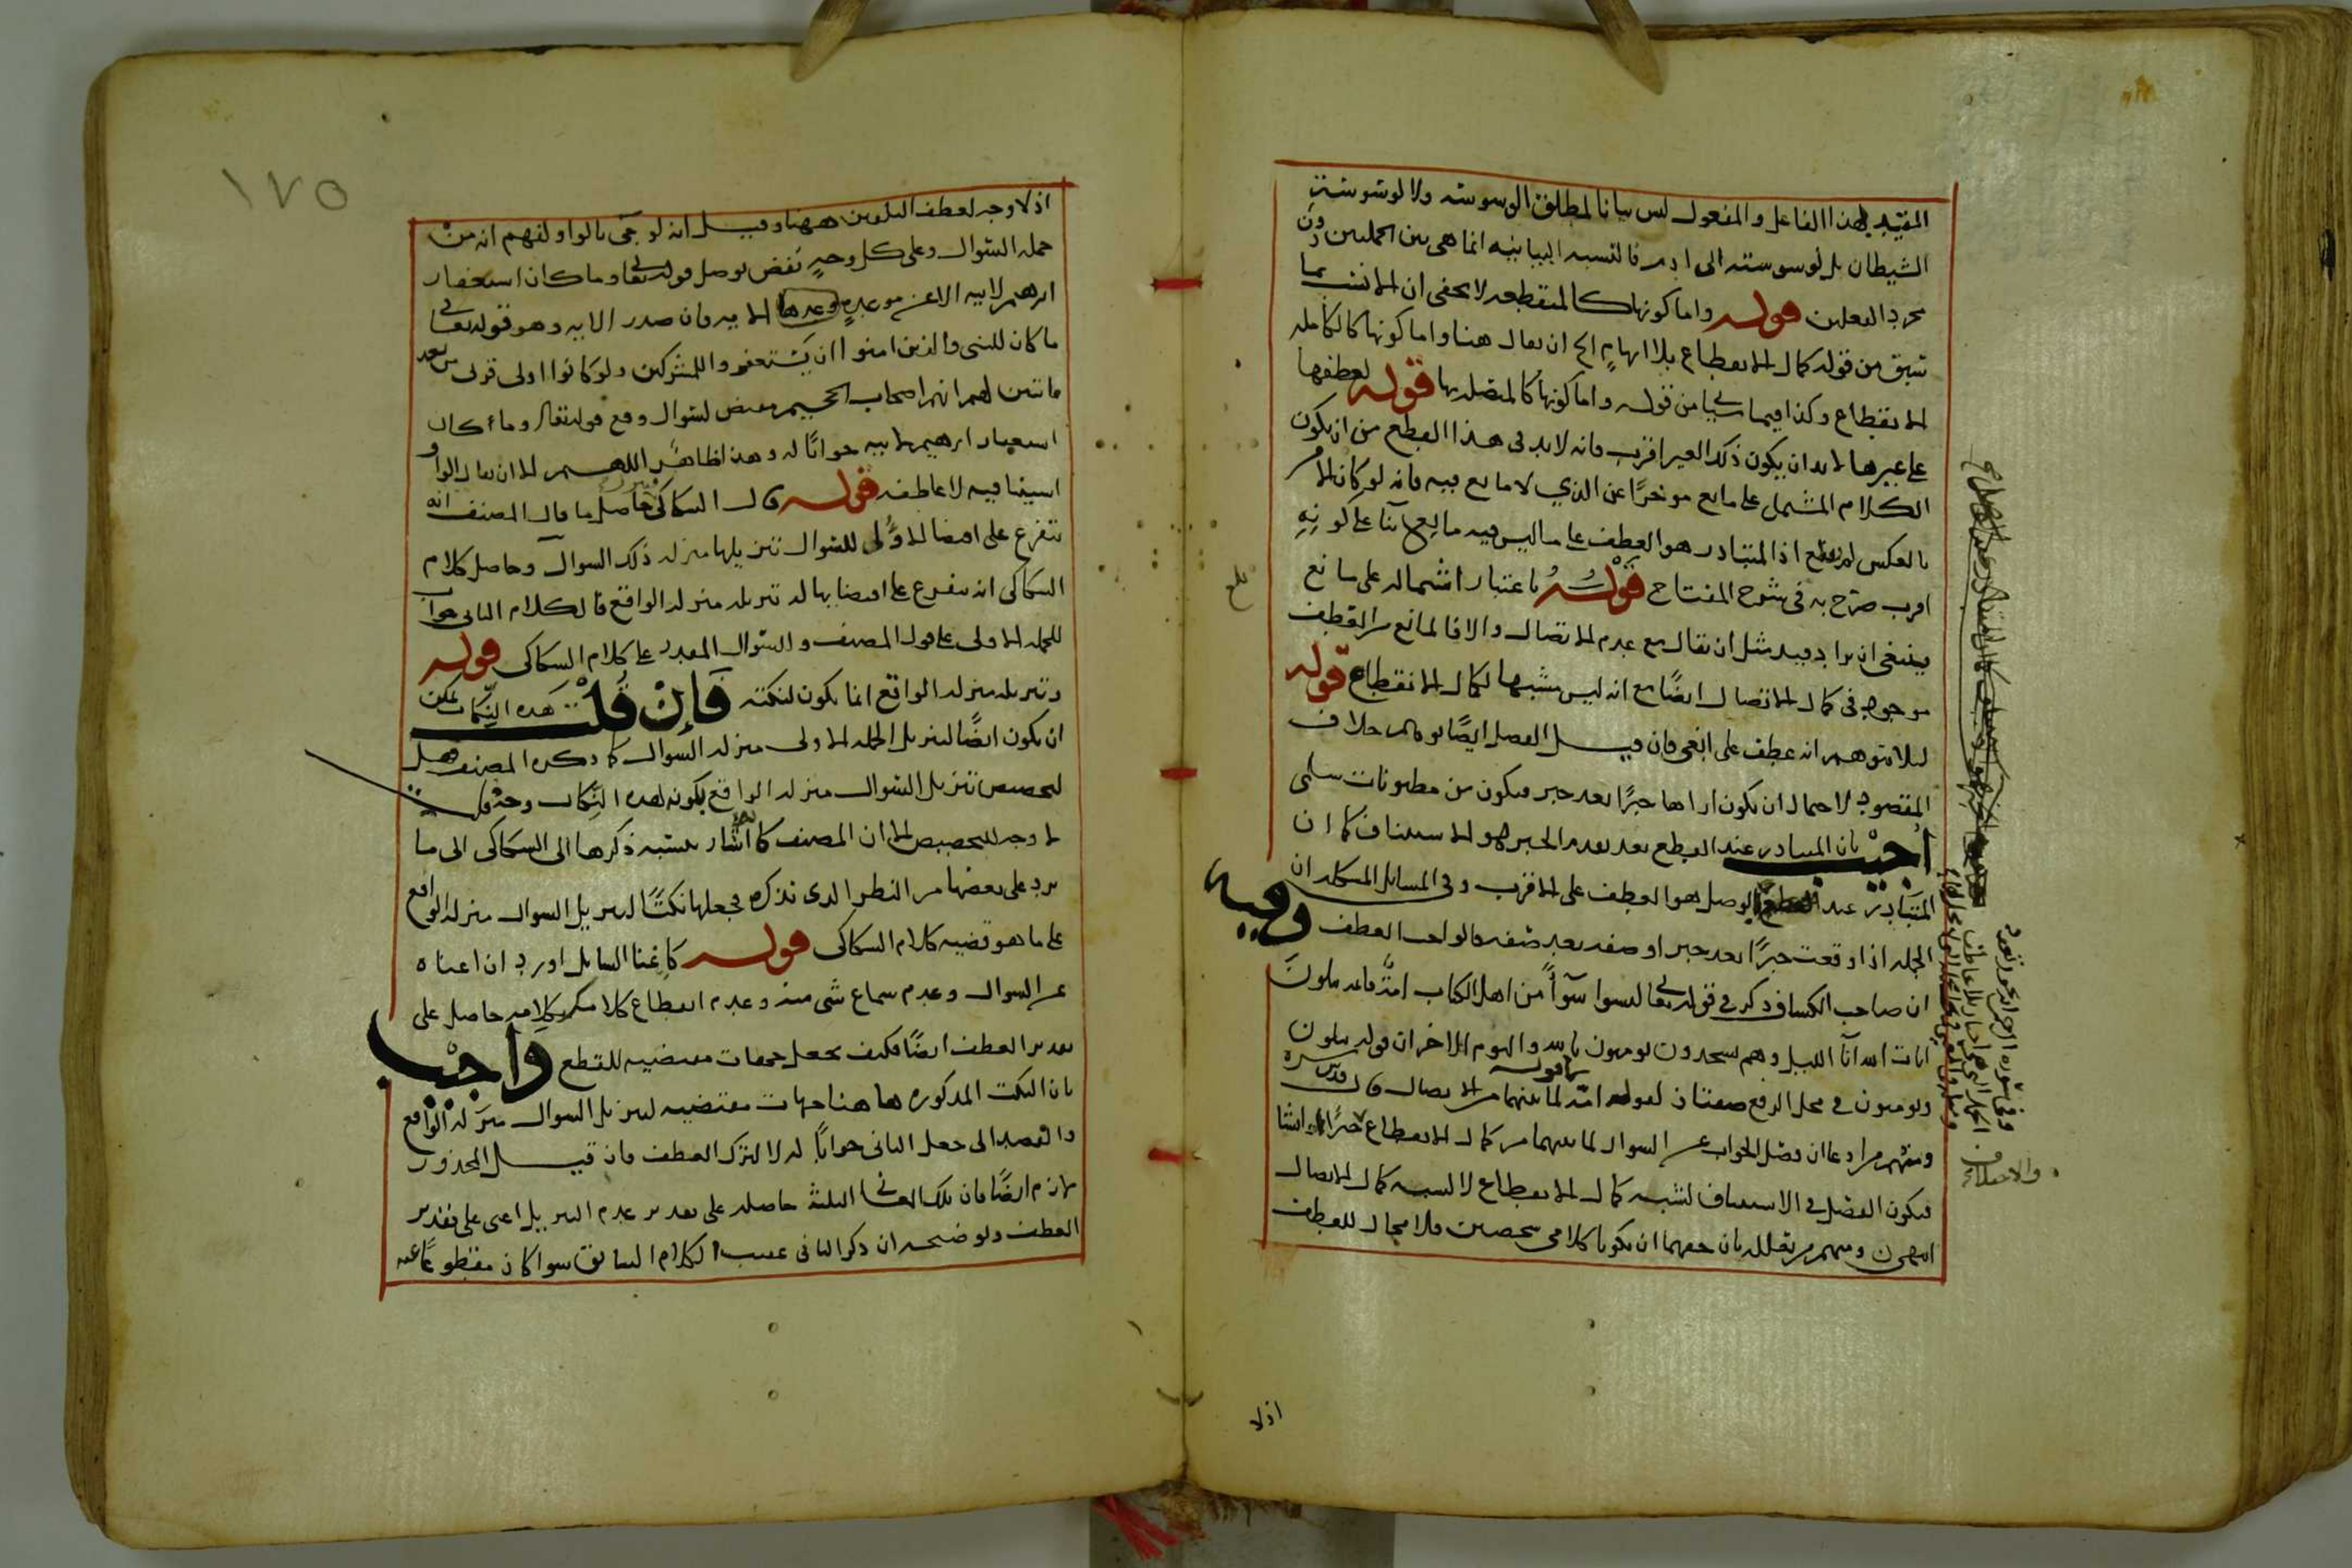 المقيد بهذا الفاعل والمفعول ليس بيانا لمطلق الوسوسه ولا لوسوسة
الشيطان بل لوسوسته الى ادم فالنسبه البيانيه انما هى بين الجملتين دون
مجرد الفعلين قوله واما كونها كالمنقطعه لا يخفى ان الانسب بما
سبق من قوله كمال الانقطاع بلا ايهام الخ ان يقال هنا واما كونها كالكامله
الانقطاع وكذا فيما سياتى من قوله واما كونها كالمتصله بها قوله لعطفها
على غيرها لابد ان يكون ذلك الغير اقرب فانه لابد فى هذا القطع من ان يكون
الكلام المشتمل على مانع موخرا عن الذي لا مانع فيه فانه لو كان الامر
بالعكس لم يقطع اذ المتبادر هو العطف على ما ليس فيه مانع بنا على كونه
اقرب صرح به فى شرح المفتاح قوله باعتبار اشتماله على مانع
ينبغى ان يراد فيه مثل ان يقال مع عدم الاتصال والا فالمانع من العطف
موجود فى كمال الاتصال ايضا مع انه ليس مشبها لكمال الانقطاع قوله
ليلا يتوهم انه عطف على ابغى فان قيل الفصل ايضا يوهم خلاف
المقصود لاحتمال ان يكون اراها خبرا بعد خبر فيكون من مظنونات سلمى
اجيب بان المتبادر عند القطع بعد تقدم الخبر هو الاستيناف كما ان
المتبادر عند الوصل هو العطف على الاقرب وفى المسايل المشكله ان
الجمله اذا وقعت خبرا بعد خبر او صفه بعد صفه فالواجب العطف وفيه
ان صاحب الكشاف ذكر فى قوله تعالى ليسوا سوآء من اهل الكتاب امة قايمة يتلون
ايات الله آنآ الليل وهم يسجدون يومنون بالله واليوم الاخر ان قوله يتلون
ويومنون فى محل الرفع صفتان لقوله امة لما بينهما من الاتصال قال قدس سره
ومنهم من ادعا ان فصل الجواب عن السوال لما بينهما من كمال الانقطاع خبرا وانشا
فيكون الفصل فى الاستيناف لشبه كمال الانقطاع لا لشبه كمال الاتصال
انتهى ومنهم من تعلل بان حقهما ان يكونا كلامى شخصين فلا مجال للعطف
بلغ
وفى سوره
والاختلاف
اذلا
١٧٥
اذ لا وجه لعطف التلوين ههنا وقيل انه لو جئ بالواو لفهم انه من
جمله السوال وعلى كل وجه نقض بوصل قوله تعالى وما كان استغفار
ابرهيم لابيه الا عن موعدة وعدها الايه فان صدر الايه وهو قوله تعالى
ما كان للنبى والذين امنوا ان يستغفروا للمشركين ولو كانوا اولى قربى من بعد
ما تبين لهم انهم اصحاب الجحيم مقتض لسوال وقع قوله تعالى وما كان
استغفار ابرهيم لابيه جوابا له وهذا ظاهر اللهم الا ان يقال الواو
استينافيه لا عاطفه قوله قال السكاكى حاصل ما قال المصنف انه
تتفرع على اقتضا الاولى للسوال تنزيلها منزله ذلك السوال وحاصل كلام
السكاكى انه يتفرع على اقتضايها له تنزيله منزله الواقع فالكلام الثانى جواب
للجمله الاولى على قول المصنف والسوال المقدر على كلام السكاكى قوله
وتنزيله منزله الواقع انما يكون لنكته فان قلت هذه النكات يمكن
ان يكون ايضا لتنزيل الجمله الاولى منزله السوال كما ذكره المصنف هل
لتخصيص تنزيل السوال منزله الواقع بكونه لهذه النكات وجه قلت
لا وجه للتخصيص الا ان المصنف كانه اشار بنسبه ذكرها الى السكاكى الى ما
يرد على بعضها من النظر الذى نذكره فجعلها نكتا لتنزيل السوال منزله الواقع
على ما هو قضيه كلام السكاكى قوله كاغنا السايل اورد ان اغناه
عن السوال وعدم سماع شى منه وعدم انقطاع كلامك بكلامه حاصل على
تقدير العطف ايضا فكيف تجعل جهات مقتضيه للقطع واجيب
بان النكت المذكوره هاهنا جهات مقتضيه لتنزيل السوال منزله الواقع
والقصد الى جعل الثانى جوابا له لا لترك العطف فان قيل المحذور
لازم ايضا فان تلك المعانى الثلثة حاصله على تقدير عدم التنزيل اعنى على تقدير
العطف وتوضيحه ان ذكر الثانى عقيب الكلام السابق سوا كان مقطوعا عنه